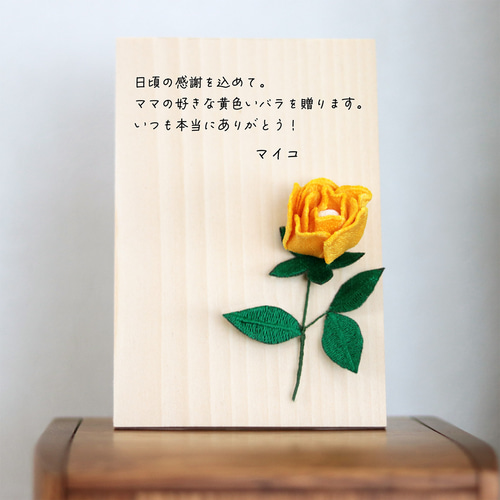 日頃の感謝を込めて。
ママの好きな黄色いバラを贈ります。
いつも本当にありがとう！
マイコ